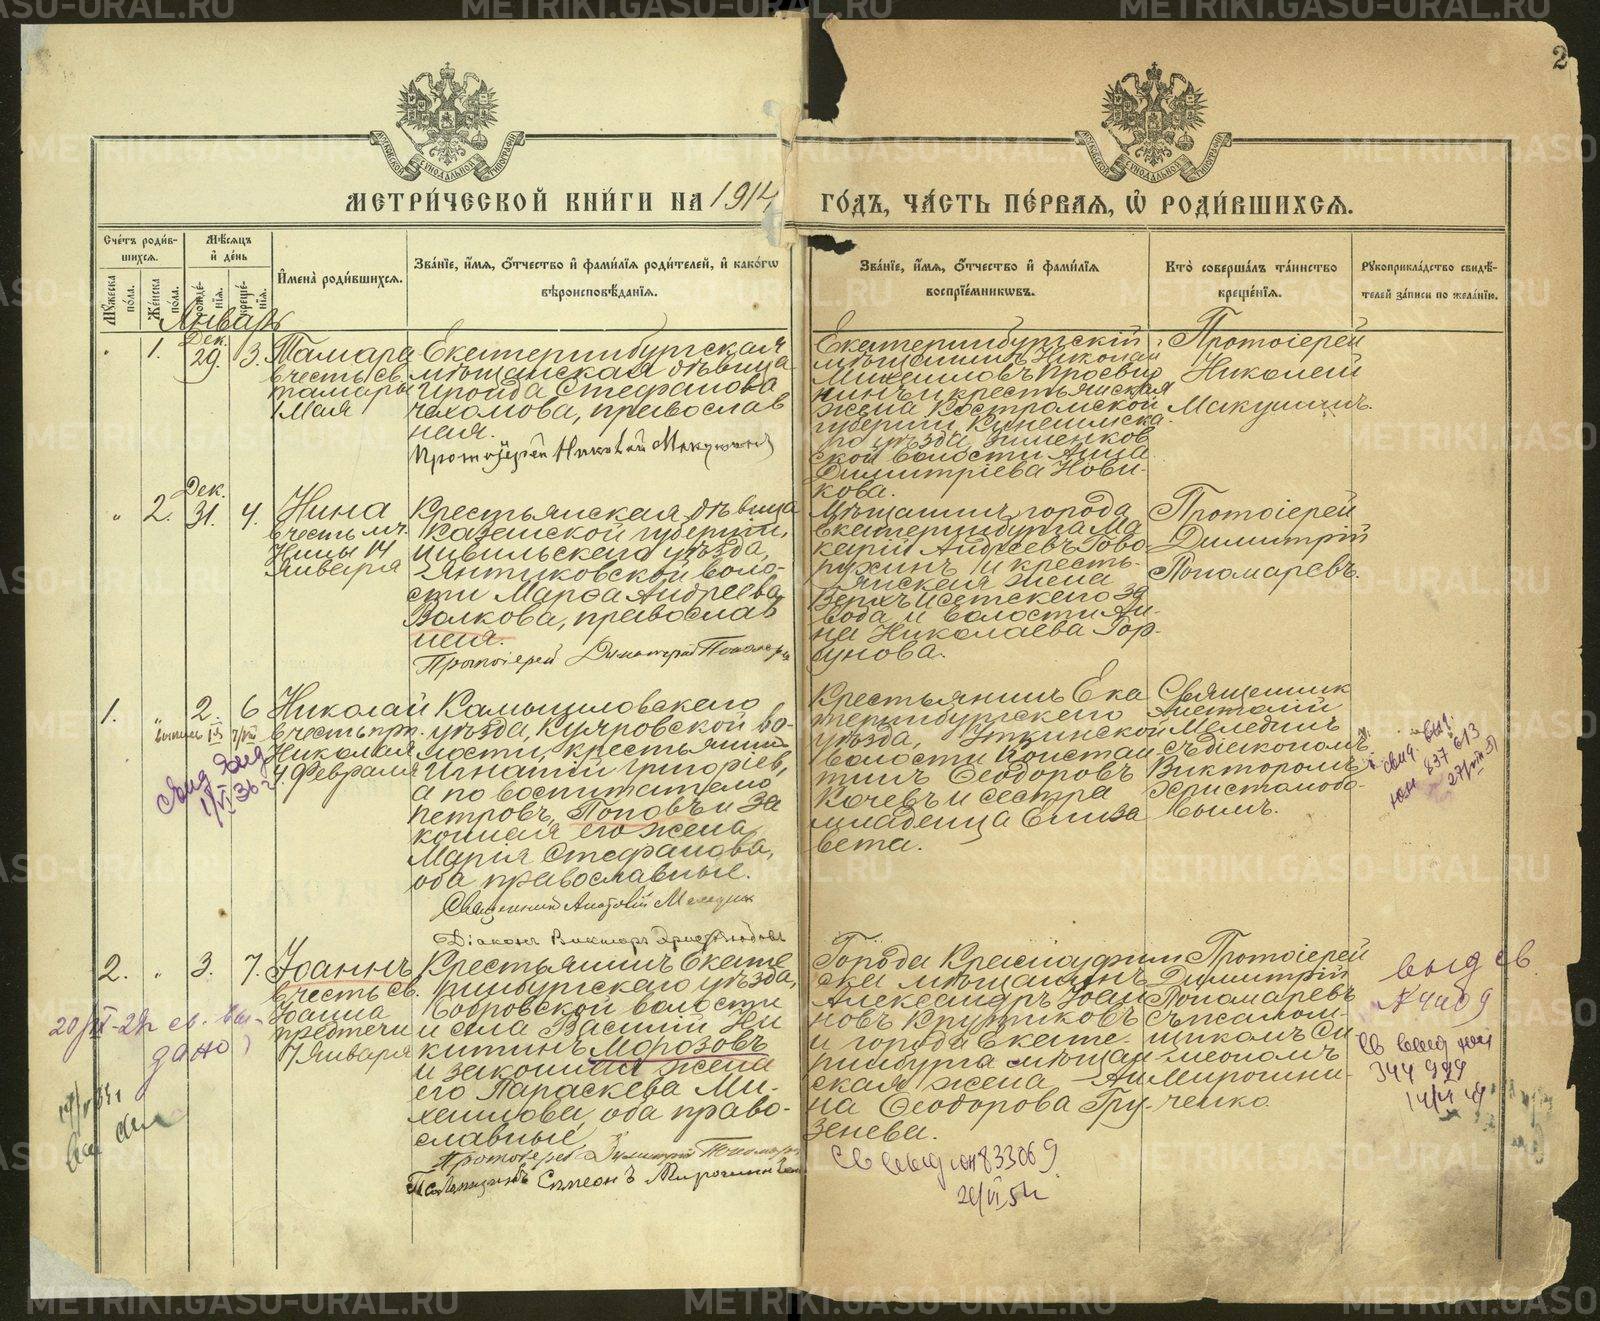 МЕТРИ́ЧЕСКОЙ КНИ́ГИ НА 1914 ГО́ДЪ, ЧА́СТЬ ПЕ́РВАЯ, Ѽ РОДИ́ВШИХСЯ.
2
Счётъ роди́в-
шихся.
Му́жеска по́ла.
Же́нска по́ла.
Мѣ́сяцъ и де́нь
рожде́-нїя.
креще́-нїя.
Имена̀ роди́вшихся.
Зва́нїе, и́мя, о́тчество и фами́лїя роди́телей, и како́гѡ
вѣроисповѣ́данїя.
Зва́нїе, и́мя, о́тчество и фами́лїя
воспрїе́мникѡвъ.
Кто̀ соверша́лъ та́инство
креще́нїя.
Рꙋкоприкла́дство свидѣ́-
телей за́писи по жела́нїю.
Январь
1.
Дек.
29.
3.
Тамара
въ честь св.
Тамары
1 Мая
Екатеринбургская
мѣщанская дѣвица
Ироида Стефанова
Чехомова, православ
ная.
Протоіерей Николай Макушинъ
Екатеринбургскій
мѣщанинъ Николай
Михеиловъ Просвир
нинъ и крестьянская
жена Костромской
губерніи, Кинешмска-
го уѣзда, Зименков
ской волости Анна
Димитріева Нови-
кова.
Протоіерей
Николай
Макушинъ.
2.
Дек.
31.
4.
Нина
въ честь мч.
Нины 14
Января
Крестьянская дѣвица
Казанской губерніи,
Цивильскаго уѣзда,
Янтиковской воло-
сти Марѳа Андреева
Волкова, православ
ная.
Протоіерей Димитрій Пономаревъ
Мѣщанинъ города
Екатеринбурга Ма
карій Андреевъ Гово-
рухинъ и кресть-
янская жена
Верхъ Исетскаго за
вода и волости Ан-
на Николаева Гор-
бунова.
Протоіерей
Димитрій
Пономаревъ.
1.
2.
6
Николай
въ честь прп.
Николая
4 Февраля
Камышловскаго
уѣзда, Куяровской во-
лости, крестьянинъ
Игнатій Григоріев,
а по воспитателю
Петровъ, Поповъ и за
конная его жена
Марія Стефанова,
оба православные.
Священникъ Анатолій Меледин
Діаконъ Викторъ Христолюбовъ
Крестьянинъ Ека
теринбургскаго
уѣзда, Уткинской
волости Констан-
тинъ Ѳеодоровъ
Кочевъ и сестра
младенца Елиза
вета.
Священник
Анатолій
Мелединъ
съ діакономъ
Викторомъ
Христолюбо-
вымъ.
свид. выд.
837 613
2.
3.
7.
Іоаннъ
въ честь св.
Іоанна
предтечи
7 Января
Крестьянинъ Екате
ринбургскаго уѣзда,
Бобровской волости
и села Василій Ни
китинъ Морозовъ
и законная жена
его Параскева Ми-
хеилова, оба право-
славные.
Протоіерей Димитрій Пономаревъ
Псаломщикъ Симеонъ Мирошниченко
Города Красноуфим
ска мѣщанинъ
Александръ Іоан
новъ Крутиковъ
и города Екате-
ринбурга мѣщан-
ская жена Ан
на Ѳеодорова Гру-
зенева.
Протоіерей
Димитрій
Пономаревъ
съ псалом-
щикомъ Си
меономъ
Мирошни-
ченко.
выд св.
св выд юн
344 929
св выд юн 833069